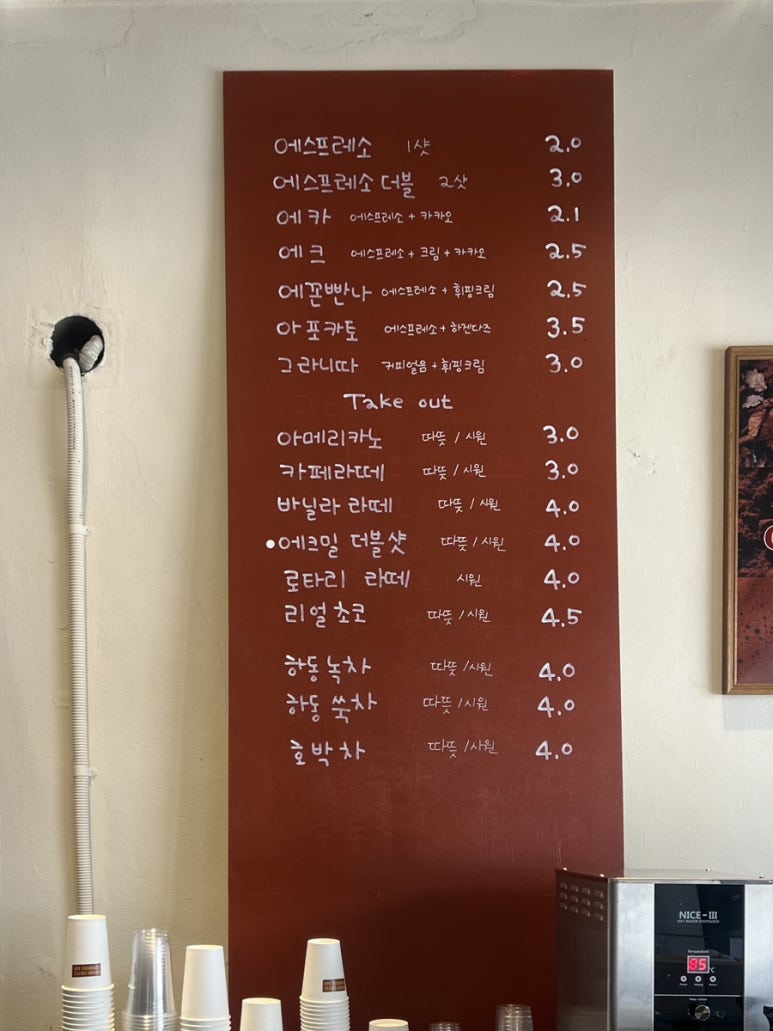 에스프레소 1샷 2.0
에스프레소 더블 2샷 3.0
에카 에스프레소 + 카카오 2.1
에크 에스프레소 + 크림 + 카카오 2.5
에꼰빤나 에스프레소 + 휘핑크림 2.5
아포카토 에스프레소 + 하겐다즈 3.5
그라니따 커피얼음 + 휘핑크림 3.0
Take out
아메리카노 따뜻 / 시원 3.0
카페라떼 따뜻 / 시원 3.0
바닐라 라떼 따뜻 / 시원 4.0
•에크밀 더블샷 따뜻 / 시원 4.0
로타리 라떼 시원 4.0
리얼초코 따뜻 / 시원 4.5
하동녹차 따뜻 / 시원 4.0
하동 쑥차 따뜻 / 시원 4.0
호박차 따뜻 / 시원 4.0
NICE-III
HOT WATER DISPENSER
Temperature
95 °C